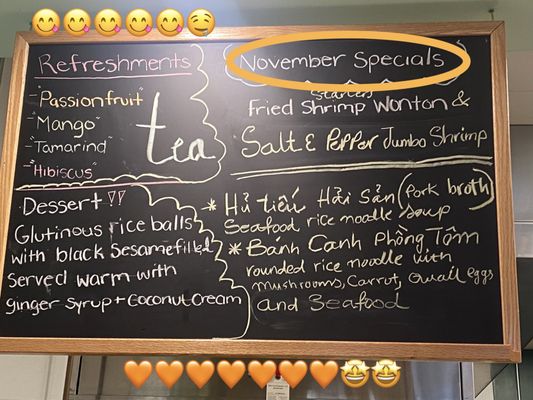 Refreshments
"Passionfruit"
-"Mango"
-"Tamarind
-"Hibiscus"
tea
Dessert
Glutinous rice balls
with black Sesame filled
Served warm with
ginger syrup + Coconut Cream
November Specials
Starters
Fried Shrimp Wonton &
Salt & Pepper Jumbo Shrimp
* Hủ tiếu Hải Sản (Pork broth)
Seafood rice noodle soup
* Bánh Canh Phồng Tôm
rounded rice noodle with
mushrooms, Carrot, Quail eggs
and Seafood